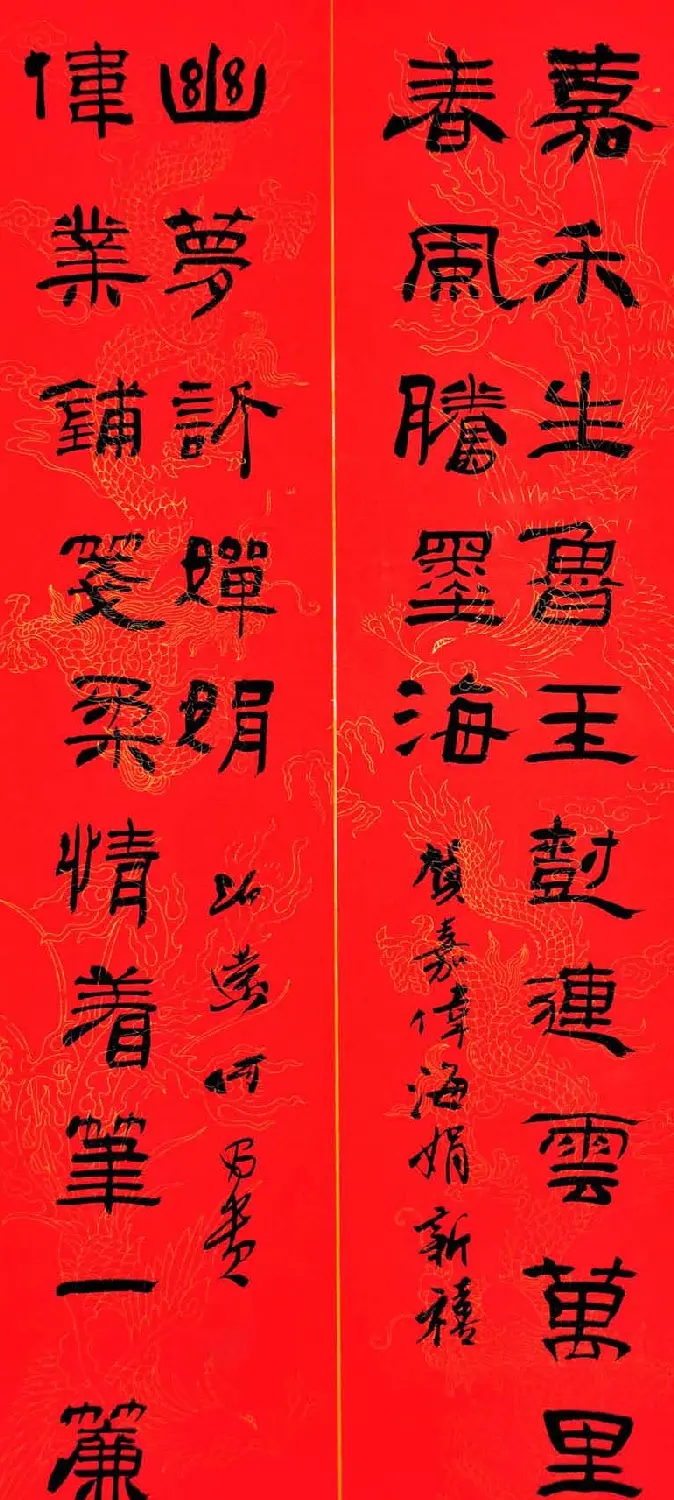 嘉禾生魯玉尌連雲萬里
春風騰墨海
賀嘉偉海娟新禧
偉業鋪箋柔情着筆一簾
幽夢訴嬋娟
何